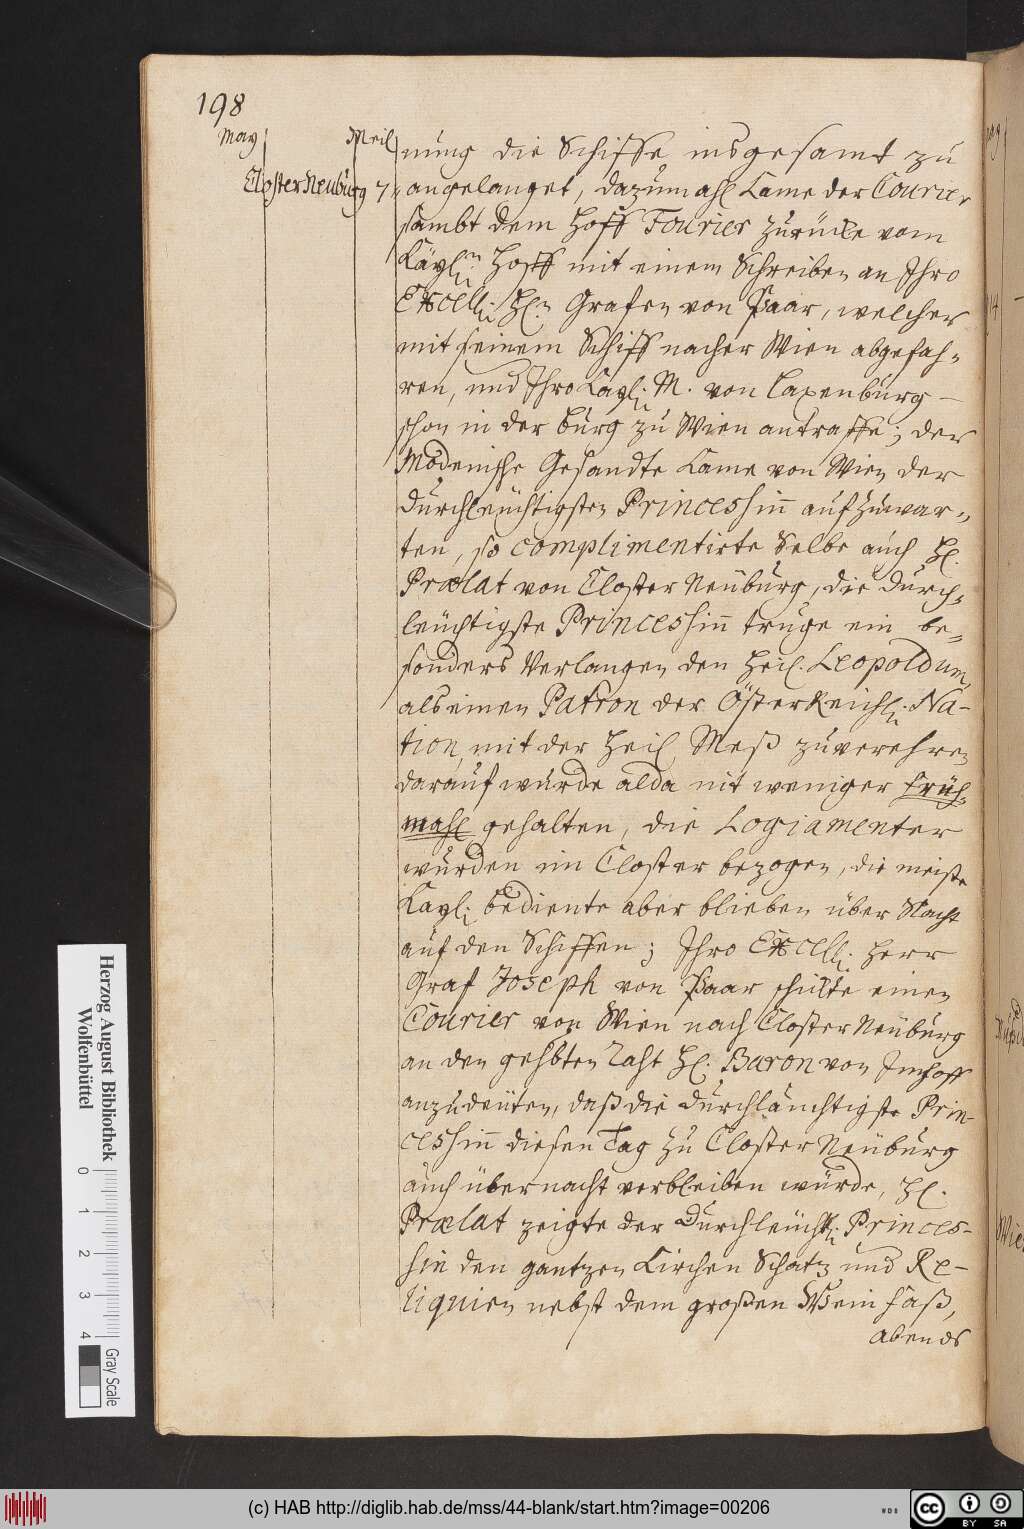 198
May Meil
Closter Neuburg 7
nung die Schiffe insgesamt zu
angelanget, dazumahl kame der Courier
sambt dem Hoff Fourier zurücke vom
Kaysl:n Hoff mit einem Schreiben an Ihro
Excell: H:n Grafen von Paar, welcher
mit seinem Schiff nacher Wien abgefah-
ren, und Ihro Kayl: M. von Laxenburg
schon in der burg zu Wien antraffe; der
Modenische Gesandte kame von Wien der
durchleüchtigsten Princeshin aufzuwar-
ten, so complimentirte Selbe auch H.
Prælat von Closter Neüburg, die durch-
leüchtigste Princeshin truge ein be-
sonders Verlangen den Heil. Leopoldum,
als einen Patron der Österreichl: Na-
tion, mit der Heil Meß zuverehren
darauf wurde alda nit weniger früh-
mahl gehalten, die Logiamenter
wurden im Closter bezogen, die meiste
Kayl: bediente aber blieben über Nacht
auf den Schiffen; Ihro Excell: Herr
Graf Joseph von Paar schickte einen
Courier von Wien nach Closter Neüburg
an den H. Baron von Imhoff
anzudeüten, daß die durchläuchtigste Prin-
ceshin diesen Tag zu Closter Neüburg
auch übernacht verbleiben würde, H.
Prælat zeigte der Durchleücht: Princes-
hin den gantzen Kirchen Schatz und Re-
liquien nebst dem großen Wein faß,
abends
Herzog August Bibliothek
Wolfenbüttel
0 1 2 3 4
Gray Scale
(c) HAB http://diglib.hab.de/mss/44-blank/start.htm?image=00206
WDB
cc BY SA